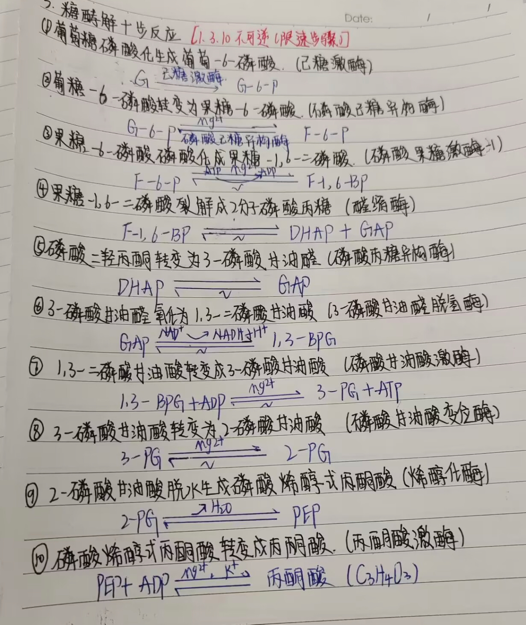 3. 糖酵解十步反应 [1.3.10不可逆(限速步骤)]
Date: / /
①葡萄糖磷酸化生成葡萄-6-磷酸.(己糖激酶)
G 己糖激酶 G-6-p
②葡糖-6-磷酸转变为果糖-6-磷酸.(磷酸己糖异构酶)
G-6-P mg2+ F-6-P
磷酸己糖异构酶
③果糖-6-磷酸磷酸化成果糖-1,6-二磷酸.(磷酸果糖激酶-1)
F-6-p ATP mg2+ ADP F-1,6-BP
④果糖-1,6-二磷酸裂解成2分子磷酸丙糖 (醛缩酶)
F-1,6-BP DHAP + GAP
⑤磷酸二羟丙酮转变为3-磷酸甘油醛 (磷酸丙糖异构酶)
DHAP GAP
⑥3-磷酸甘油醛氧化为1,3-二磷酸甘油酸 (3-磷酸甘油醛脱氢酶)
GAP NAD+ NADH+H+ 1,3-BPG
⑦ 1,3-二磷酸甘油酸转变成3-磷酸甘油酸 (磷酸甘油酸激酶)
1,3-BPG+ADP mg2+ 3-PG+ATP
⑧ 3-磷酸甘油酸转变为2-磷酸甘油酸 (磷酸甘油酸变位酶)
3-PG mg2+ 2-PG
⑨ 2-磷酸甘油酸脱水生成磷酸烯醇式丙酮酸(烯醇化酶)
2-PG H2O PEP
⑩ 磷酸烯醇式丙酮酸转变成丙酮酸.(丙酮酸激酶)
PEP+ADP mg2+, K+ 丙酮酸 (C3H4O3)